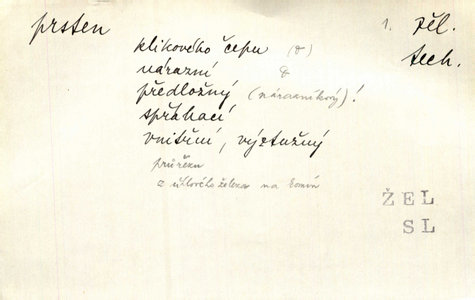 prsten 1. žel.
tech.
klikového čepu (v)
nárazní
předložný (nárazníkový)!
spřáhací
vnitřní, výztužný
průřezu
z úhlového železa na komín
ŽEL
SL